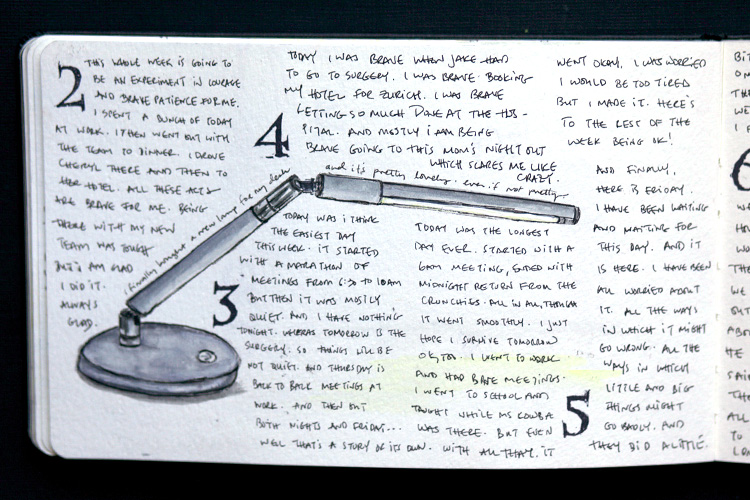 2
THIS WHOLE WEEK IS GOING TO
BE AN EXPERIMENT IN COURAGE
AND BRAVE PATIENCE FOR ME.
I SPENT A BUNCH OF TODAY
AT WORK. I THEN WENT OUT WITH
THE TEAM TO DINNER. I DROVE
CHERYL THERE AND THEN TO
HER HOTEL. ALL THESE ACTS
ARE BRAVE FOR ME. BEING
THERE WITH MY NEW
TEAM WAS TOUGH
BUT I AM GLAD
I DID IT.
ALWAYS
GLAD.
I finally bought a new lamp for my desk
and it's pretty lovely. even if not pretty
3
TODAY WAS I THINK
THE EASIEST DAY
THIS WEEK. IT STARTED
WITH A MARATHON OF
MEETINGS FROM 6:30 TO 10AM
BUT THEN IT WAS MOSTLY
QUIET. AND I HAVE NOTHING
TONIGHT. WHEREAS TOMORROW IS THE
SURGERY. SO THINGS WILL BE
NOT QUIET. AND THURSDAY IS
BACK TO BACK MEETINGS AT
WORK. AND THEN OUT
BOTH NIGHTS AND FRIDAY...
WELL THAT'S A STORY OF ITS OWN.
4
TODAY I WAS BRAVE WHEN JAKE HAD
TO GO TO SURGERY. I WAS BRAVE BOOKING
MY HOTEL FOR ZURICH. I WAS BRAVE
LETTING SO MUCH DONE AT THE HOS-
PITAL. AND MOSTLY I AM BEING
BRAVE GOING TO THIS MOM'S NIGHT OUT
WHICH SCARES ME LIKE
CRAZY.
5
TODAY WAS THE LONGEST
DAY EVER. STARTED WITH A
6AM MEETING, ENDED WITH
MIDNIGHT RETURN FROM THE
CRUNCHIES. ALL IN ALL, THOUGH
IT WENT SMOOTHLY. I JUST
HOPE I SURVIVE TOMORROW
OK, TOO. I WENT TO WORK
AND HAD BACK MEETINGS.
I WENT TO SCHOOL AND
TAUGHT WHILE MS
WAS THERE. BUT EVEN
WITH ALL THAT, IT
WENT OKAY. I WAS WORRIED
I WOULD BE TOO TIRED
BUT I MADE IT. HERE'S
TO THE REST OF THE
WEEK BEING OK!
AND FINALLY,
HERE IS FRIDAY.
I HAVE BEEN WAITING
AND WAITING FOR
THIS DAY. AND IT
IS HERE. I HAVE BEEN
ALL WORRIED ABOUT
IT. ALL THE WAYS
IN WHICH IT MIGHT
GO WRONG. ALL THE
WAYS IN WHICH
LITTLE AND BIG
THINGS MIGHT
GO BADLY. AND
THEY DID A LITTLE.
6